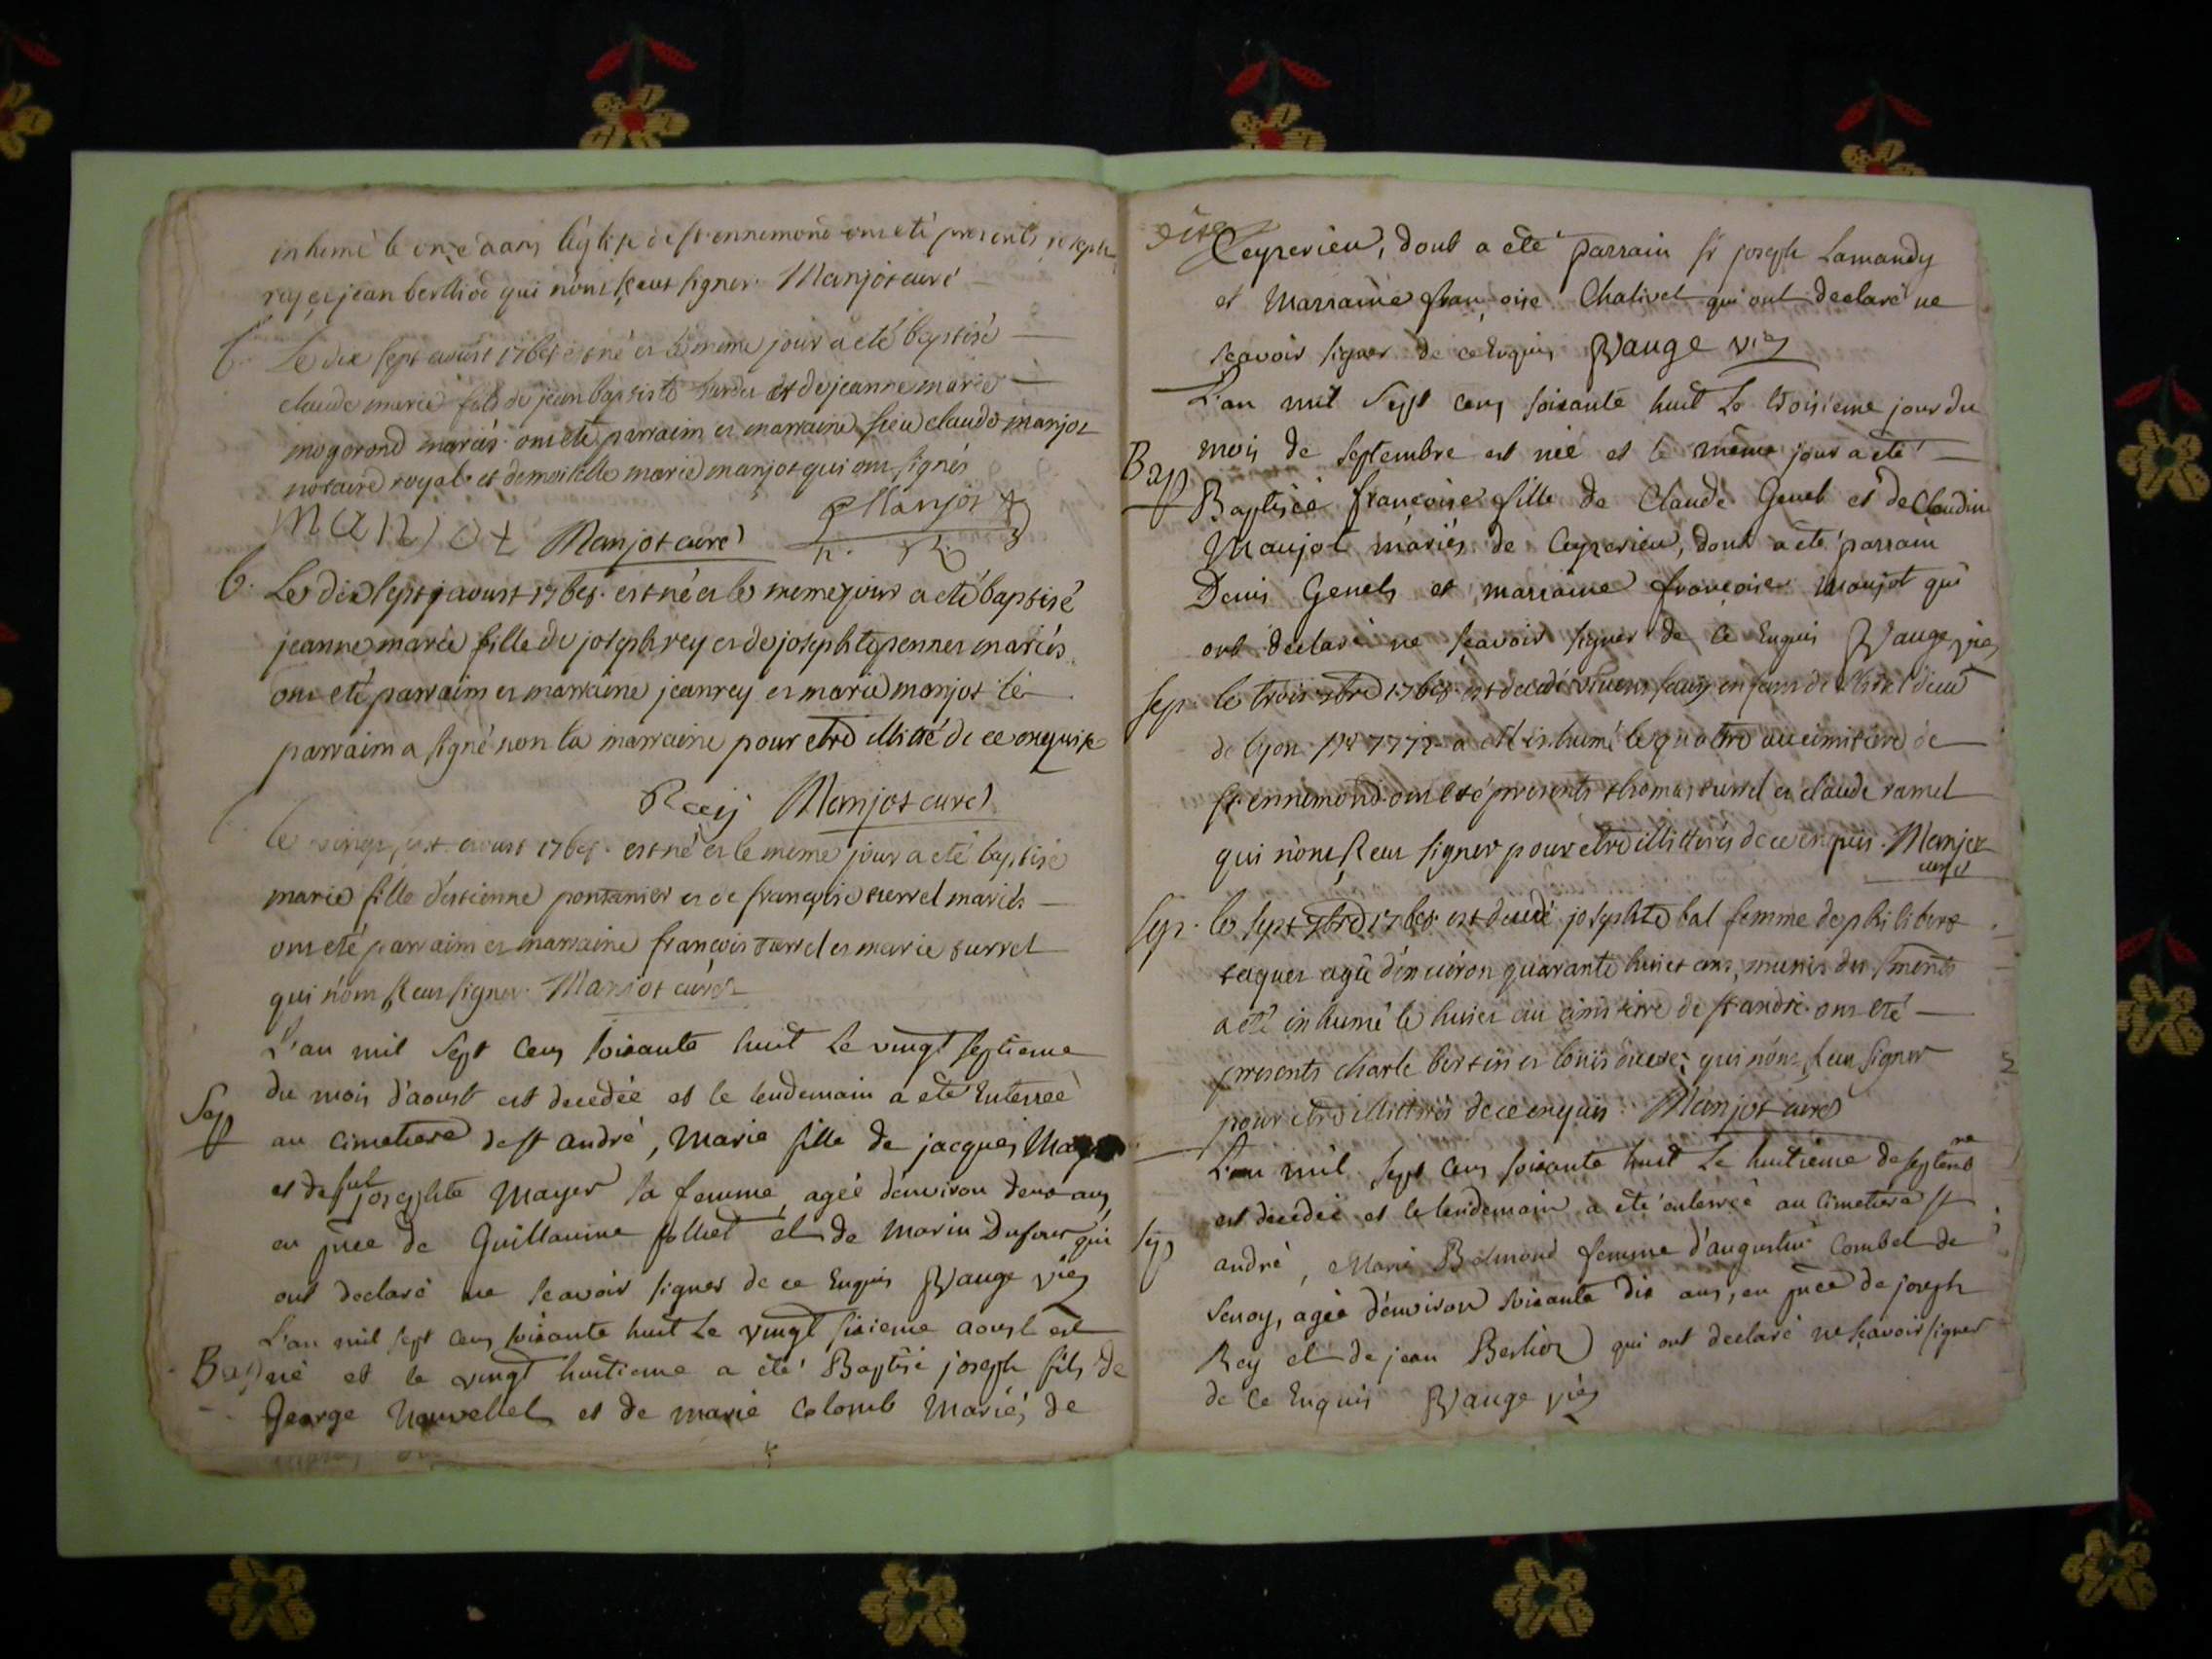 inhumé le onze dans l'église de st. ennemond ont eté presents joseph
rey et jean berlliod qui n'ont sceut signer. Manjot curé
b. Le dix sept avust 1768 est né et le meme jour a eté baptisé
claude marie fils de jean baptiste et de jeanne marie
mogorond mariés. ont eté parraim et marraine sieu claude manjot
notaire royal et demoiselle marie manjot qui ont signés
manjot Manjot curé Manjot
b. Le dix sept avust 1768. est né et le meme jour a eté baptisé
jeanne marie fille de joseph rey et de josephte pennet mariés.
ont eté parraim et marraine jean rey et marie manjot le
parraim a signé non la marraine pour etre illitté de ce enquise
Reij Manjot curé
le avust 1768. est né et le meme jour a eté baptisé
marie fille d'estienne pontanier et de françoise surrel mariés
ont eté parraim et marraine françois surrel et marie surrel
qui n'ont sceut signer. Manjot curé
L'an mil Sept Cens soixante huit Le vingt septieme
du mois d'aoust est decedée et le lendemain a eté Enterreé
Sep au cimetiere de st andré, Marie fille de jacques
et de josephte Mayer sa femme, ageé d'environ deux ans,
en pnce de Guillaume folliet et de Marin Dufour qui
ont declaré ne scavoir signer de ce Enquis Vauge vic
L'an mil sept cens soixante huit Le vingt sixieme aoust est
Bap né et le vingt huitieme a eté Baptisé joseph fils de
George Nouvellet et de marie Colomb Mariés de
Ceyzerieu, dont a eté parrain sr joseph Lamandy
et Marraine françoise Chalivet qui ont declaré ne
scavoir signer de ce Enquis Vauge vic
L'an mil Sept cens soixante huit Le troisieme jour du
mois de septembre est neé et le même jour a eté
Bap Baptiseé françoise fille de Claude Genet et de Claudin
Manjot mariés de Ceyzerieu, dont a eté parrain
Denis Genet et marraine françoise Manjot qui
ont declaré ne scavoir signer de ce Enquis Vauge vic
Sep. le trois 7bre 1768. est decedé
de lyon a eté inhumé le quatre au cimitiere de
st. ennemond. ont eté presents thomas surrel et claude ramel
qui n'ont sceut signer pour etre illitterés de ce enquis. Manjot
curé
Sep. le sept 7bre 1768. est decedé josephte bal femme de philibert
agée d'environ quarante huict ans, munie des sments
a eté inhumé le huict au cimitiere de st andré. ont eté
presents charle bertin et louis qui n'ont sceut signer
pour etre illittrés de ce enquis. Manjot curé
L'an mil Sept cens soixante huit Le huitieme de septembre
est decedeé et le lendemain a eté enterreé au Cimetiere st
Sep andré, Marie Bolmond femme d'augustin Combet de
Senoy, ageé d'environ soixante dix ans, en pnce de joseph
Rey et de jean Berlioz qui ont declaré ne scavoir signer
de ce Enquis Vauge vic